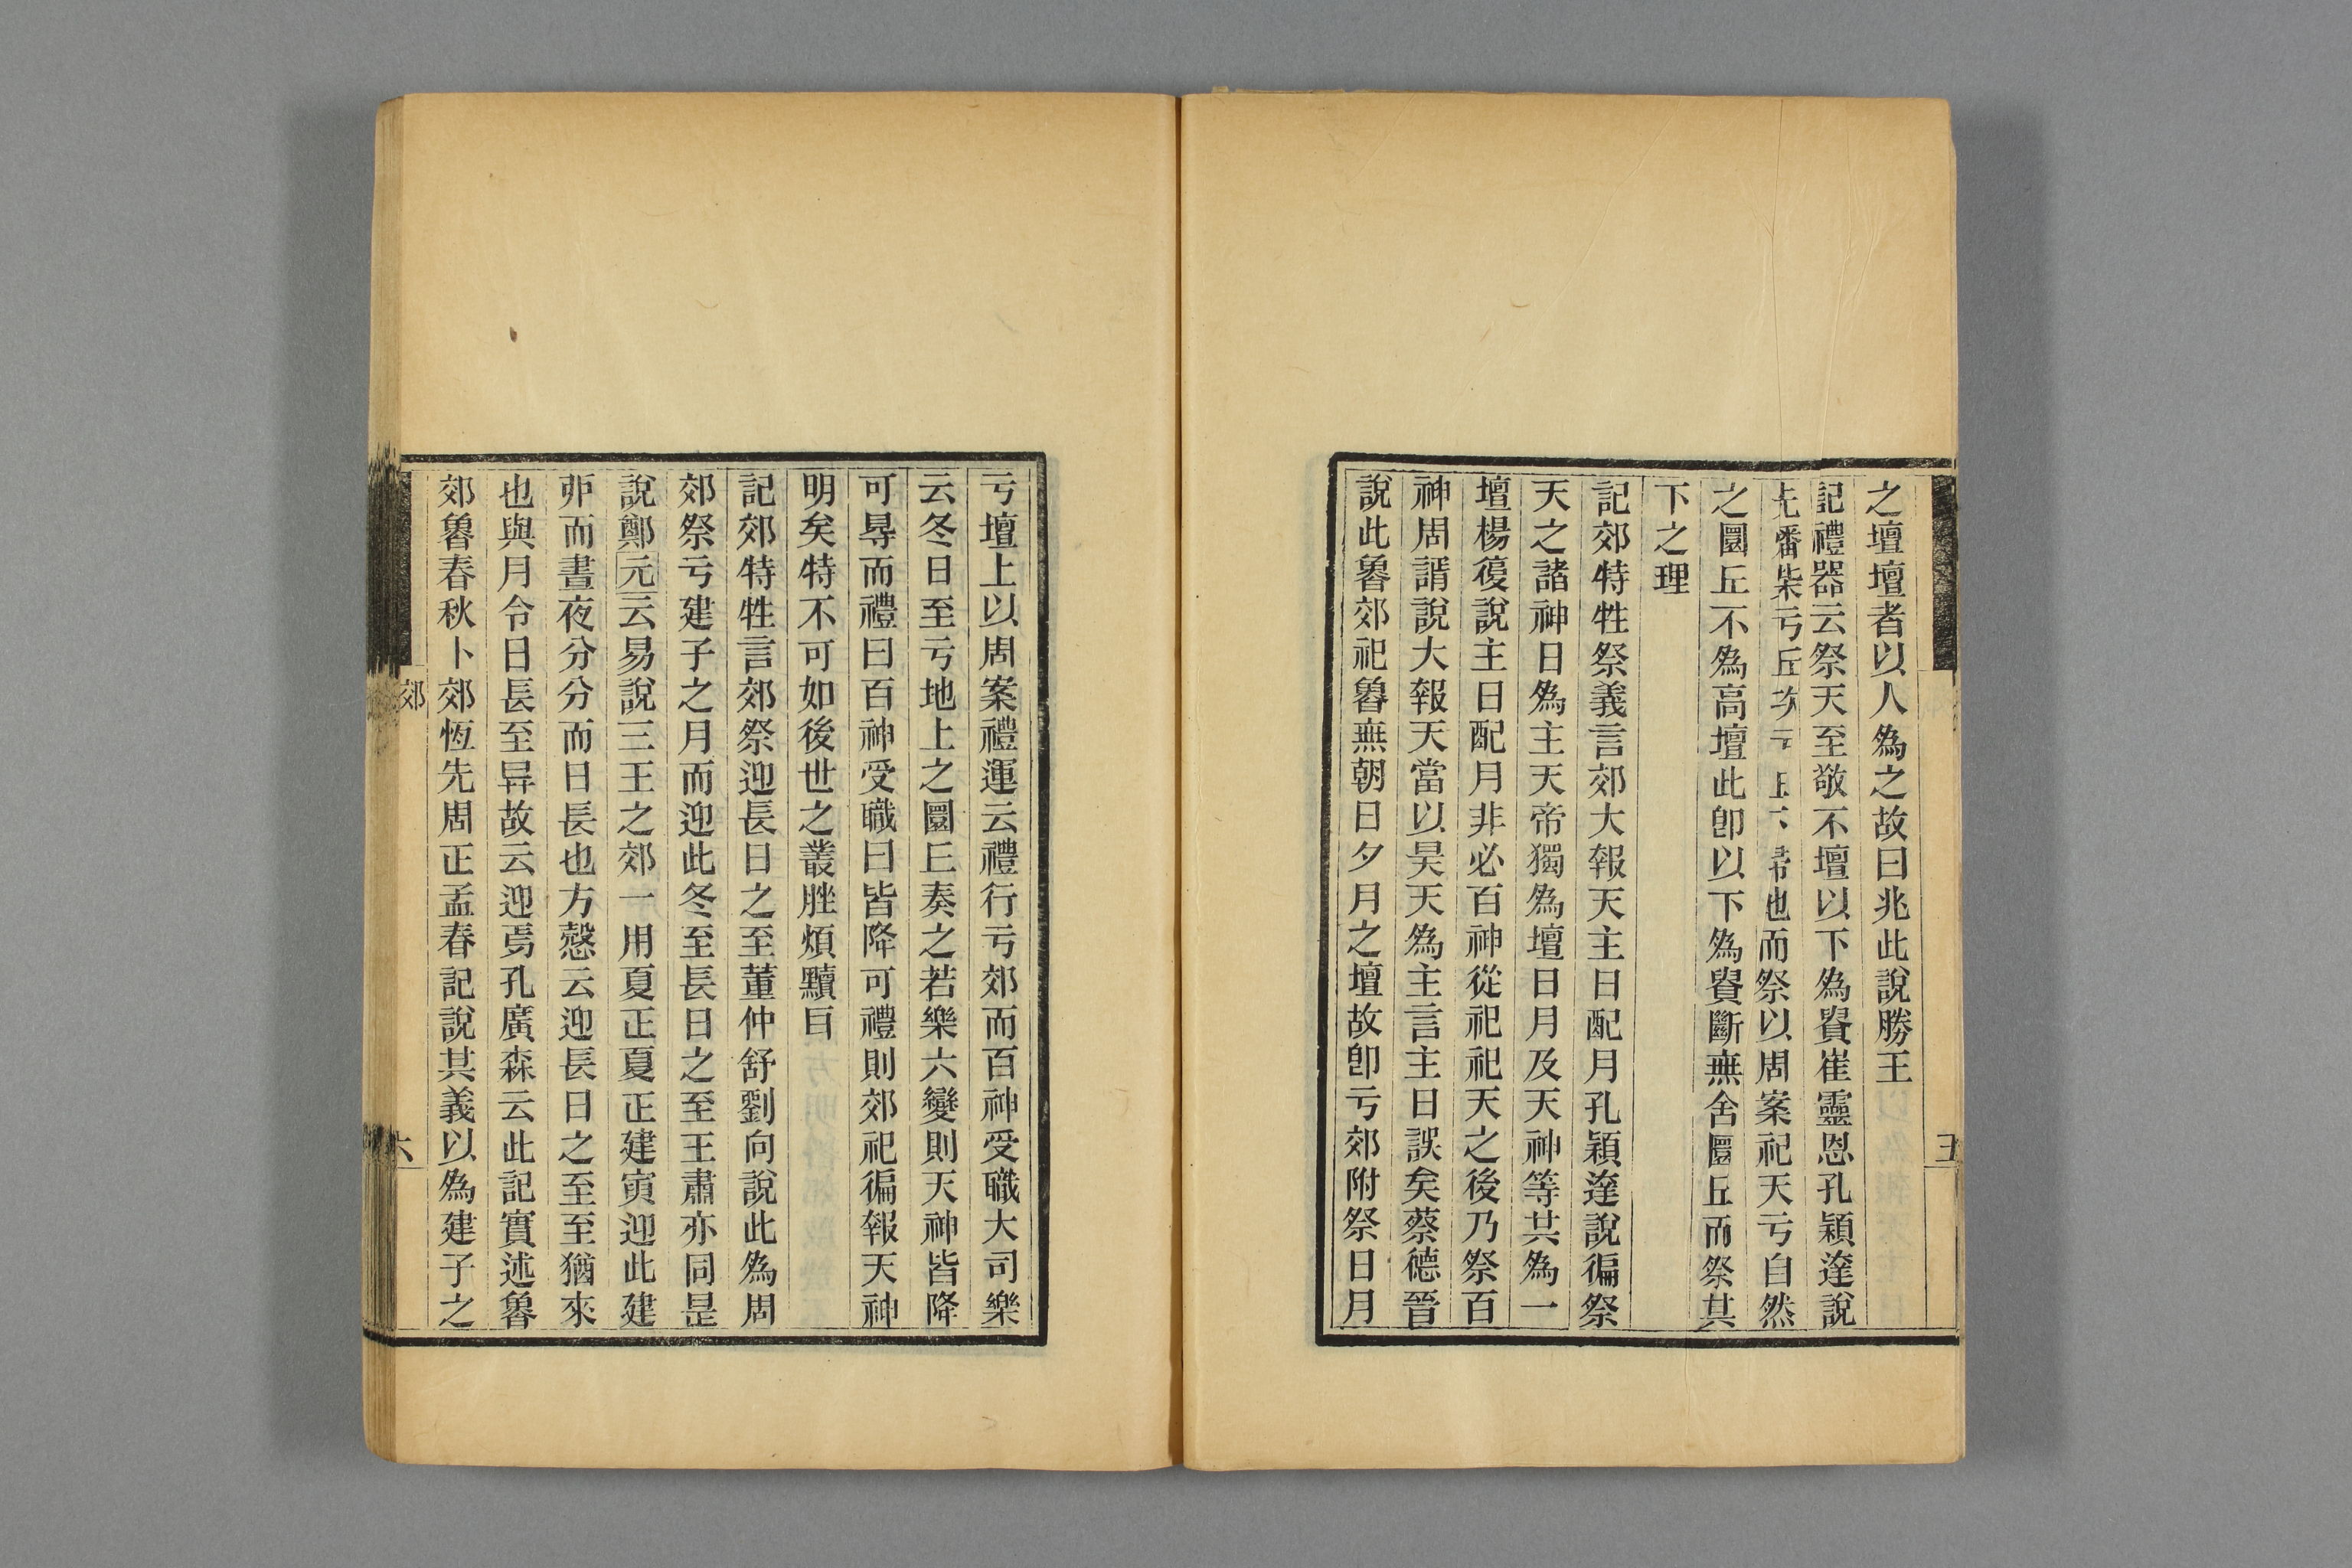 之壇壇者以人為之故曰兆此說勝王
記禮器云祭天至敬不壇以下為貴崔靈恩孔穎達說
先燔柴亏丘次亏丘下帚也而祭以周案祀天亏自然
之圜丘不為高壇此卽以下為貴斷無舍圜丘而祭其
下之理
記郊特牲祭義言郊大報天主日配月孔穎達說徧祭
天之諸神日為主天帝獨為壇日月及天神等共為一
壇楊復說主日配月非必百神從祀祀天之後乃祭百
神周諝說大報天當以昊天為主言主日誤矣蔡德晉
說此魯郊祀魯無朝日夕月之壇故卽亏郊附祭日月
五
亏壇上以周案禮運云禮行亏郊而百神受職大司樂
云冬日至亏地上之圜㠪奏之若樂六變則天神皆降
可㝵而禮曰百神受職曰皆降可禮則郊祀徧報天神
明矣特不可如後世之叢脞煩黷㠯
記郊特牲言郊祭迎長日之至董仲舒劉向說此為周
郊祭亏建子之月而迎此冬至長日之至王肅亦同是
說鄭元云易說三王之郊一用夏正夏正建寅迎此建
夘而晝夜分分而日長也方慤云迎長日之至至猶來
也與月令日長至异故云迎焉孔廣森云此記實述魯
郊魯春秋卜郊恆先周正孟春記說其義以為建子之
郊
六